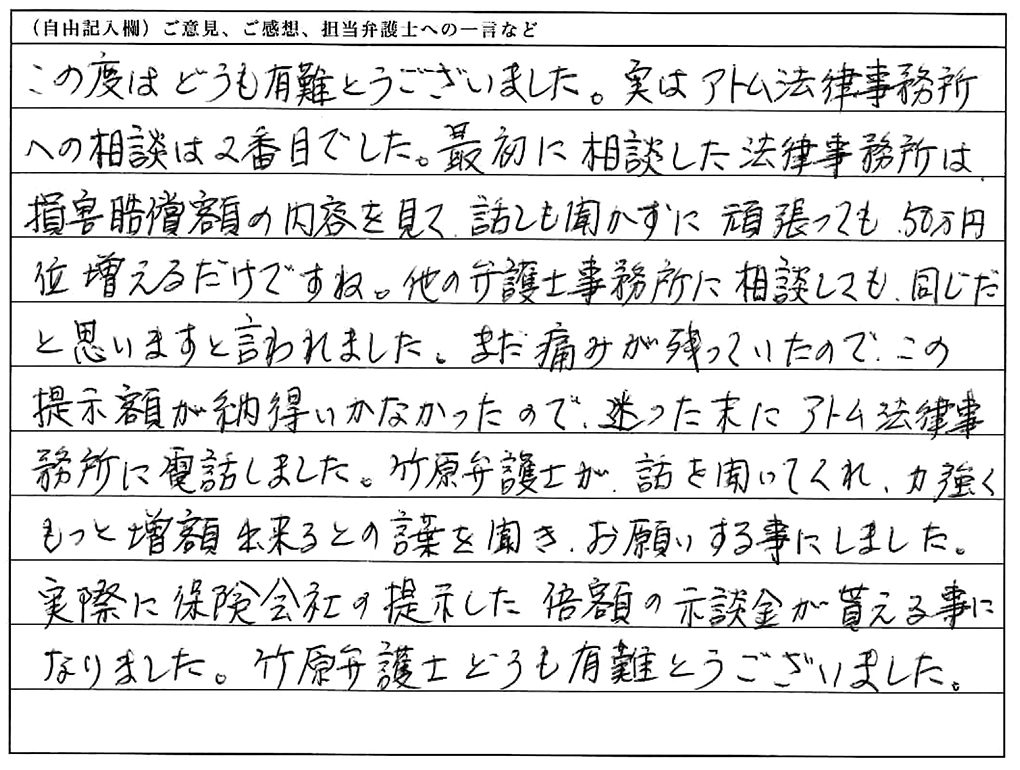 （自由記入欄）ご意見、ご感想、担当弁護士への一言など
この度は どうも有難とうございました。実は アトム法律事務所
への相談は2番目でした。最初に 相談した 法律事務所は、
損害賠償額の内容を見て、話しも聞かずに 頑張っても、50万円
位 増えるだけですね。他の弁護士事務所に 相談しても、同じだ
と思いますと言われました。まだ 痛みが 残っていたので、この
提示額が納得いかなかったので、迷った末に アトム法律事
務所に電話しました。竹原弁護士が、話を聞いてくれ、力強く
もっと 増額 出来るとの言葉を聞き、お願いする事にしました。
実際に 保険会社の提示した 倍額の示談金が貰える事に
なりました。竹原弁護士どうも有難とうございました。